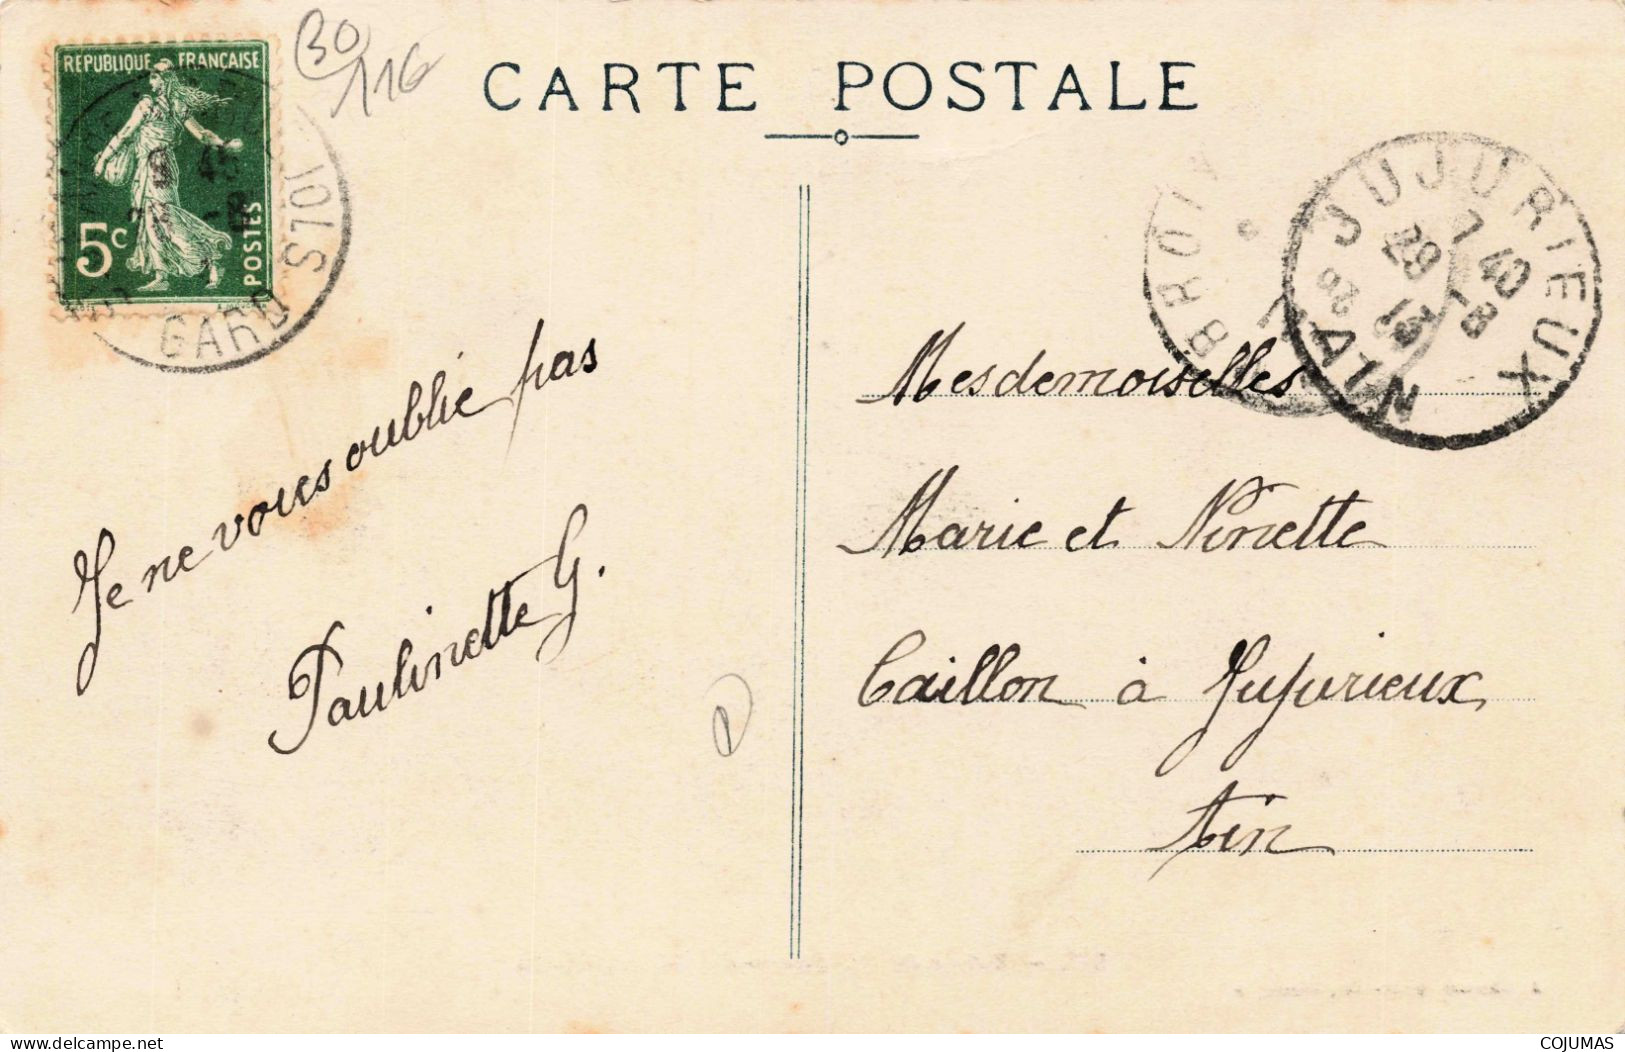 CARTE POSTALE
REPUBLIQUE FRANÇAISE
5c
POSTES
GARD
30
116
JUJURIEUX
7 40
29 - 8
13
AIN
Je ne vous oublie pas
Paulinette G.
Mesdemoiselles
Marie et Ninette
Caillon à Jujurieux
Ain
delcampe.net
COJUMAS